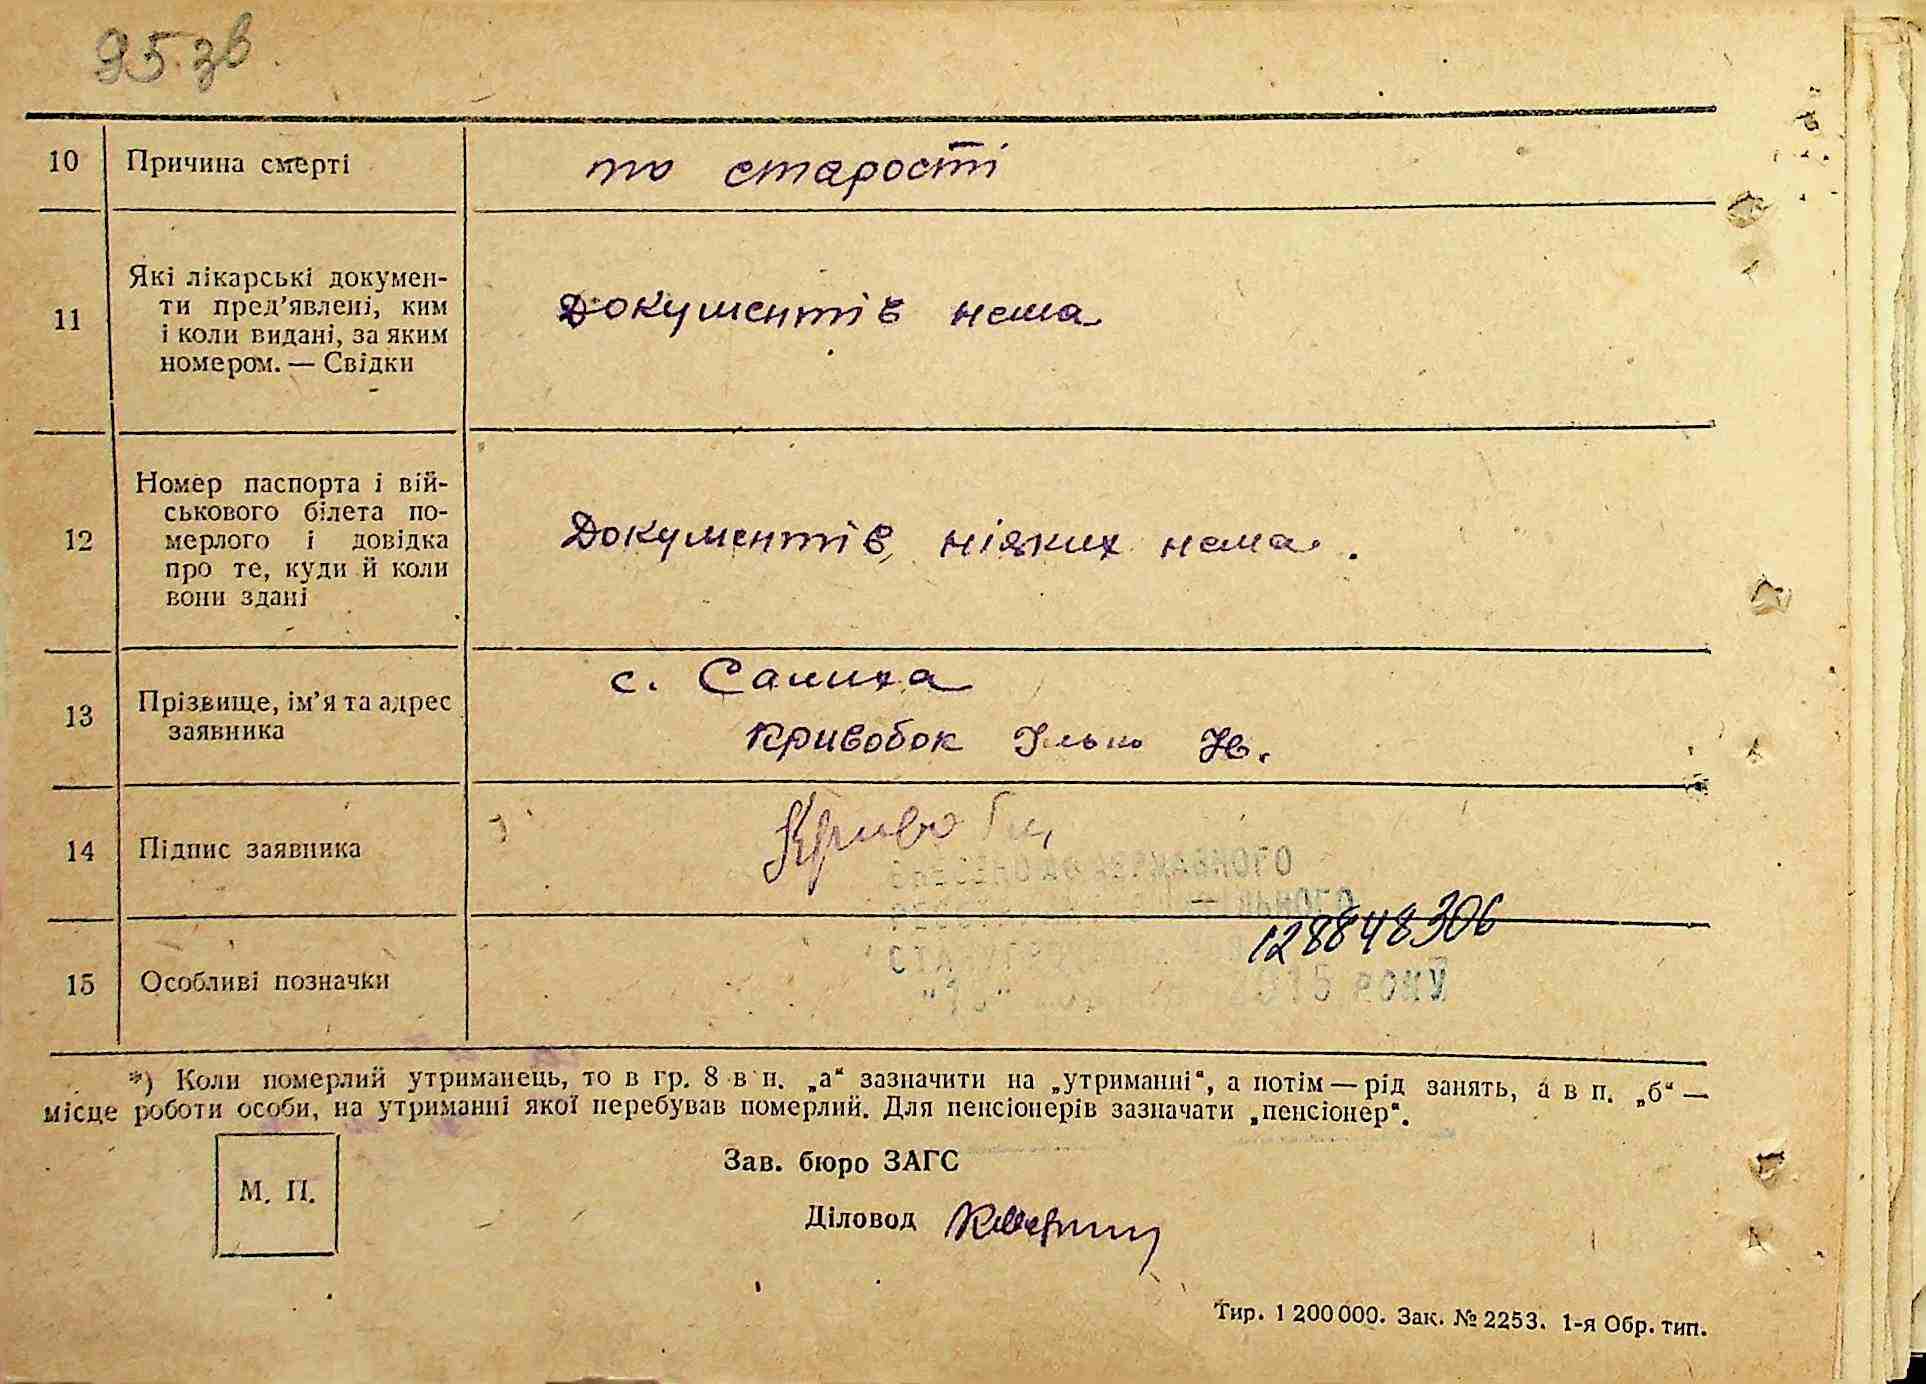 95 зв
10 Причина смерті по старості
11 Які лікарські докумен-
ти пред’явлені, ким
і коли видані, за яким
номером. — Свідки
Документів нема
12 Номер паспорта і вій-
ськового білета по-
мерлого і довідка
про те, куди й коли
вони здані
Документів ніяких нема.
13 Прізвище, ім’я та адрес
заявника
с. Салиха
Кривобок Ілько
14 Підпис заявника
128848306
15 Особливі позначки
*) Коли померлий утриманець, то в гр. 8 в п. „а“ зазначити на „утриманні“, а потім — рід занять, а в п. „б“ —
місце роботи особи, на утриманні якої перебував померлий. Для пенсіонерів зазначати „пенсіонер“.
М. П.
Зав. бюро ЗАГС
Діловод
Тир. 1 200 000. Зак. № 2253. 1-я Обр. тип.